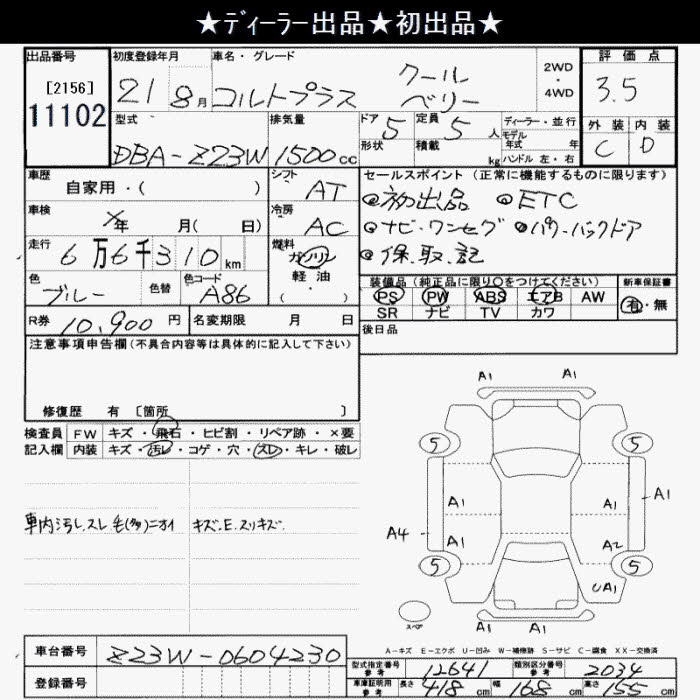 ★ディーラー出品★初出品★
出品番号 初度登録年月 車名・グレード 評価点
[2156] 21 8月 コルトプラス クール ベリー 2WD ・ 4WD 3.5
11102 型式 排気量 ドア 5 定員 5人 ディーラー・並行 外装 内装
DBA-Z23W 1500cc 形状 積載 kg モデル年式 年 C D
ハンドル 左・右
車歴 シフト セールスポイント (正常に機能するものに限ります)
自家用・( ) AT ◎初出品 ◎ETC
車検 ×年 月( 日) 冷房 AC ◎ナビ・ワンセグ ◎パワーバックドア
走行 6万6千310km 燃料 ガソリン ◎保.取.記
軽・油 ・( )
色 ブルー 色替 色コード A86 装備品 (純正品に限り○をつけてください) 新車保証書
PS PW ABS エアB AW 有・無
SR ナビ TV カワ
R券 10,900円 名変期限 月 日 後日品
注意事項申告欄(不具合内容等は具体的に記入して下さい)
修復歴 有 〔箇所 〕
検査員 FW キズ・飛石・ヒビ割・リペア跡・×要
記入欄 内装 キズ・汚レ・コゲ・穴・スレ・キレ・破レ
車内汚レ.スレ毛(多)ニオイ キズ.E.スリキズ.
A1 A1
5 5
A1 A1 A1
A4 A1 A2
5 5
UA1
スペア A1 A1
A-キズ E-エクボ U-凹み W-補修跡 S-サビ C-腐食 XX-交換済
車台番号 Z23W-0604230
型式指定番号 参考 12641 類別区分番号 参考 2034
登録番号
車庫証明用 参考 長さ 418cm 幅 168cm 高さ 155cm